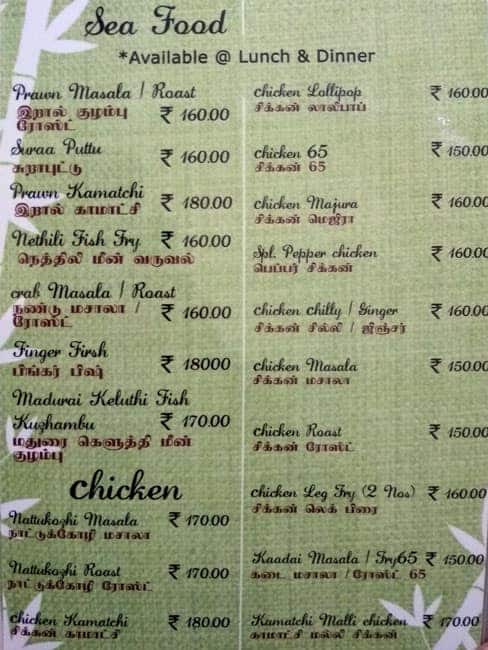 Sea Food
*Available @ Lunch & Dinner
Prawn Masala / Roast
இறால் குழம்பு
ரோஸ்ட்
₹ 160.00
Suraa Puttu
சுறாபுட்டு
₹ 160.00
Prawn Kamatchi
இறால் காமாட்சி
₹ 180.00
Nethili Fish Fry
நெத்திலி மீன் வருவல்
₹ 160.00
crab Masala / Roast
நண்டு மசாலா /
ரோஸ்ட்
₹ 160.00
Finger Firsh
பிங்கர் பிஷ்
₹ 18000
Madurai Keluthi Fish
Kuzhambu
மதுரை கெளுத்தி மீன்
குழம்பு
₹ 170.00
chicken
Nattukozhi Masala
நாட்டுக்கோழி மசாலா
₹ 170.00
Nattukozhi Roast
நாட்டுக்கோழி ரோஸ்ட்
₹ 170.00
chicken Kamatchi
சிக்கன் காமாட்சி
₹ 180.00
chicken Lollipop
சிக்கன் லாலிபாப்
₹ 160.00
chicken 65
சிக்கன் 65
₹ 150.00
chicken Majura
சிக்கன் மெஜிரா
₹ 160.00
Spl. Pepper chicken
பெப்பர் சிக்கன்
₹ 160.00
chicken chilly / Ginger
சிக்கன் சில்லி / ஜிஞ்சர்
₹ 160.00
chicken Masala
சிக்கன் மசாலா
₹ 150.00
chicken Roast
சிக்கன் ரோஸ்ட்
₹ 150.00
chicken Leg Fry (2 Nos)
சிக்கன் லெக் பிரை
₹ 160.00
Kaadai Masala / Fry65
கடை மசாலா / ரோஸ்ட் 65
₹ 150.00
Kamatchi Malli chicken
காமாட்சி மல்லி சிக்கன்
₹ 170.00